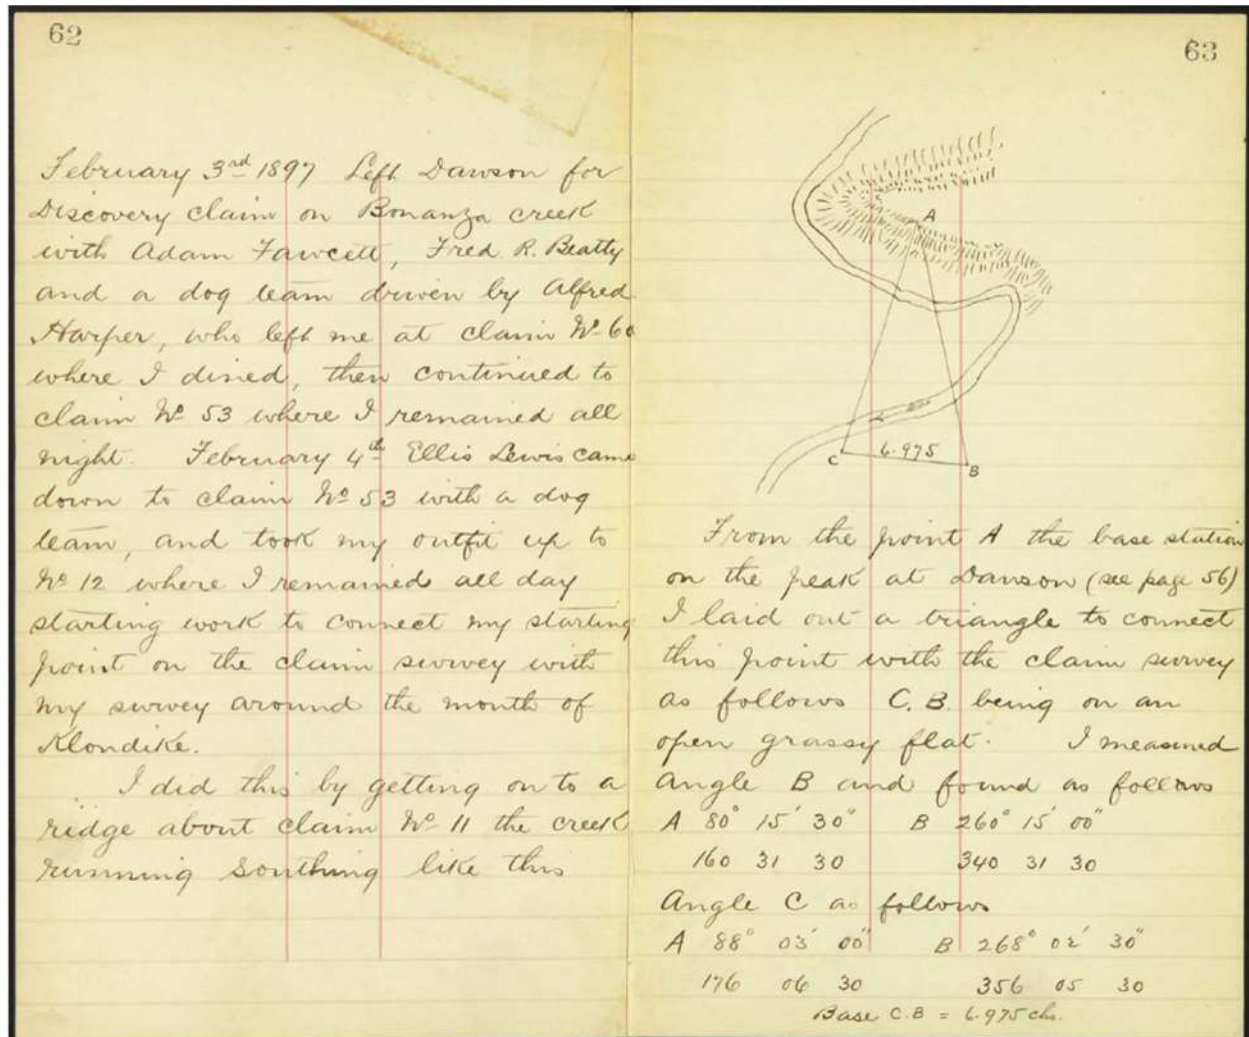 62
February 3rd 1897 Left Dawson for
Discovery claim on Bonanza creek
with Adam Fawcett, Fred R. Beatty
and a dog team driven by Alfred
Harper, who left me at claim No 60
where I dined, then continued to
claim No 53 where I remained all
night. February 4th Ellis Lewis came
down to claim No 53 with a dog
team, and took my outfit up to
No 12 where I remained all day
starting work to connect my starting
point on the claim survey with
my survey around the mouth of
Klondike.
I did this by getting on to a
ridge about claim No 11 the creek
running like this
63
A
C 6.975 B
From the point A the base station
on the peak at Dawson (see page 56)
I laid out a triangle to connect
this point with the claim survey
as follows C.B. being on an
open grassy flat. I measured
Angle B and found as follows
A 80° 15' 30" B 260° 15' 00"
160 31 30 340 31 30
Angle C as follows
A 88° 03' 00" B 268° 02' 30"
176 06 30 356 05 30
Base C.B = 6.975 chs.